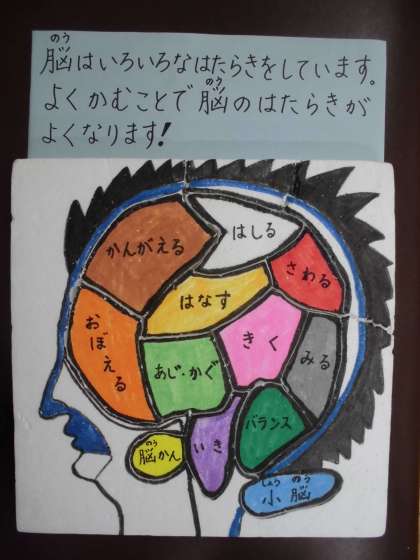 脳はいろいろなはたらきをしています。
のう
よくかむことで脳のはたらきが
のう
よくなります!
かんがえる
はしる
さわる
はなす
おぼえる
きく
みる
あじ・かぐ
バランス
いき
のう
脳かん
しょうのう
小脳